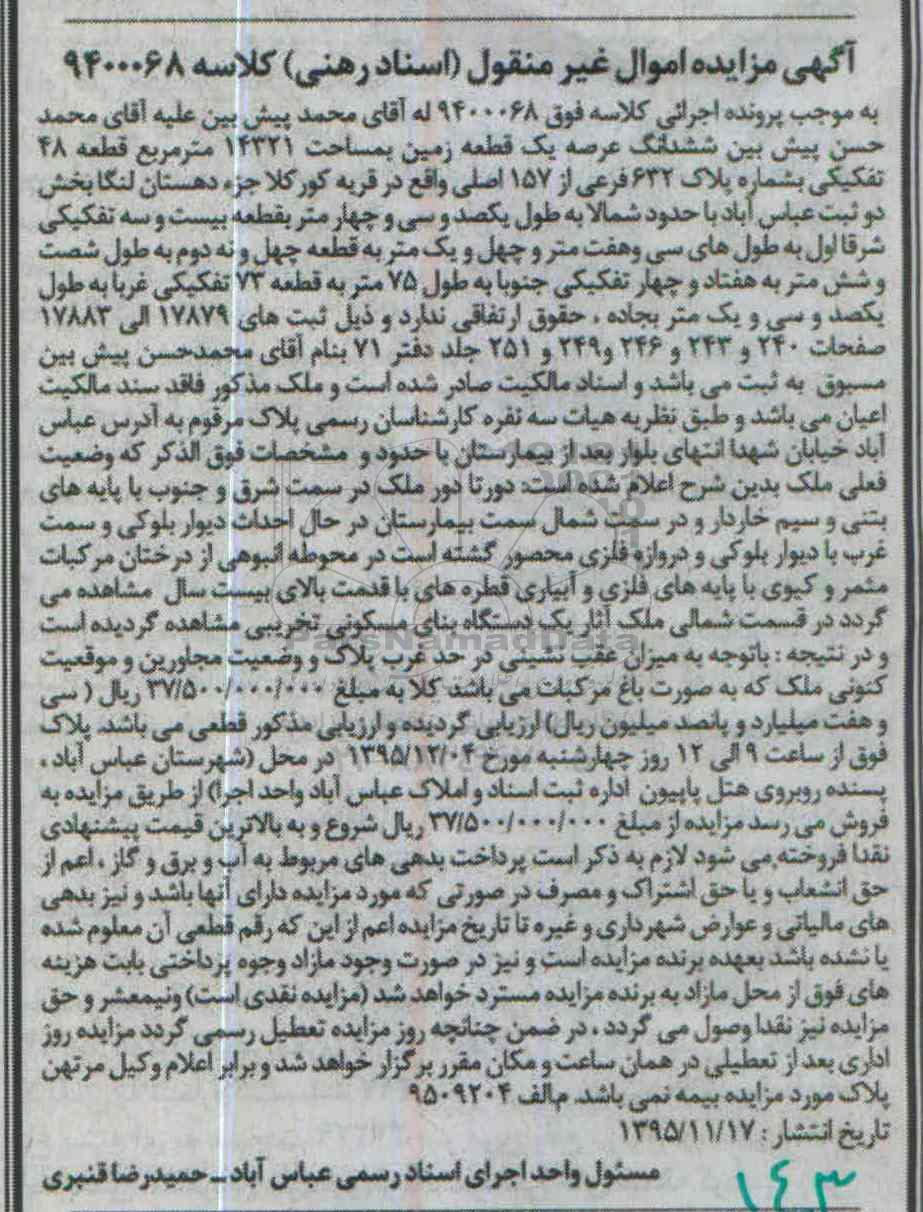 آگهی مزایده اموال غیر منقول (اسناد رهنی) کلاسه ۹۴۰۰۰۶۸
به موجب پرونده اجرائی کلاسه فوق ۹۴۰۰۰۶۸ له آقای محمد پیش بین علیه آقای محمد
حسن پیش بین ششدانگ عرصه یک قطعه زمین بمساحت ۱۴۳۲۱ مترمربع قطعه ۴۸
تفکیکی بشماره پلاک ۶۳۲ فرعی از ۱۵۷ اصلی واقع در قریه کورکلا جزء دهستان لنگا بخش
دو ثبت عباس آباد با حدود شمالا به طول یکصد و سی و چهار متر بقطعه بیست و سه تفکیکی
شرقا اول به طول های سی وهفت متر و چهل و یک متر به قطعه چهل و نه دوم به طول شصت
و شش متر به هفتاد و چهار تفکیکی جنوبا به طول ۷۵ متر به قطعه ۷۳ تفکیکی غربا به طول
یکصد و سی و یک متر بجاده ، حقوق ارتفاقی ندارد و ذیل ثبت های ۱۷۸۷۹ الی ۱۷۸۸۳
صفحات ۲۴۰ و ۲۴۳ و ۲۴۶ و۲۴۹ و ۲۵۱ جلد دفتر ۷۱ بنام آقای محمدحسن پیش بین
مسبوق به ثبت می باشد و اسناد مالکیت صادر شده است و ملک مذکور فاقد سند مالکیت
اعیان می باشد و طبق نظریه هیات سه نفره کارشناسان رسمی پلاک مرقوم به آدرس عباس
آباد خیابان شهدا انتهای بلوار بعد از بیمارستان با حدود و مشخصات فوق الذکر که وضعیت
فعلی ملک بدین شرح اعلام شده است: دورتا دور ملک در سمت شرق و جنوب با پایه های
بتنی و سیم خاردار و در سمت شمال سمت بیمارستان در حال احداث دیوار بلوکی و سمت
غرب با دیوار بلوکی و دروازه فلزی محصور گشته است در محوطه انبوهی از درختان مرکبات
مثمر و کیوی با پایه های فلزی و آبیاری قطره های با قدمت بالای بیست سال مشاهده می
گردد در قسمت شمالی ملک آثار یک دستگاه بنای مسکونی تخریبی مشاهده گردیده است
و در نتیجه : باتوجه به میزان عقب نشینی در حد غرب پلاک و وضعیت مجاورین و موقعیت
کنونی ملک که به صورت باغ مرکبات می باشد کلا به مبلغ ۳۷/۵۰۰/۰۰۰/۰۰۰ ریال ( سی
و هفت میلیارد و پانصد میلیون ریال) ارزیابی گردیده و ارزیابی مذکور قطعی می باشد. پلاک
فوق از ساعت ۹ الی ۱۲ روز چهارشنبه مورخ ۱۳۹۵/۱۲/۰۴ در محل (شهرستان عباس آباد ،
پسنده روبروی هتل پاپیون اداره ثبت اسناد و املاک عباس آباد واحد اجرا) از طریق مزایده به
فروش می رسد مزایده از مبلغ ۳۷/۵۰۰/۰۰۰/۰۰۰ ریال شروع و به بالاترین قیمت پیشنهادی
نقدا فروخته می شود لازم به ذکر است پرداخت بدهی های مربوط به آب و برق و گاز ، اعم از
حق انشعاب و یا حق اشتراک و مصرف در صورتی که مورد مزایده دارای آنها باشد و نیز بدهی
های مالیاتی و عوارض شهرداری و غیره تا تاریخ مزایده اعم از این که رقم قطعی آن معلوم شده
یا نشده باشد بعهده برنده مزایده است و نیز در صورت وجود مازاد وجوه پرداختی بابت هزینه
های فوق از محل مازاد به برنده مزایده مسترد خواهد شد (مزایده نقدی است) ونیمعشر و حق
مزایده نیز نقدا وصول می گردد ، در ضمن چنانچه روز مزایده تعطیل رسمی گردد مزایده روز
اداری بعد از تعطیلی در همان ساعت و مکان مقرر برگزار خواهد شد و برابر اعلام وکیل مرتهن
پلاک مورد مزایده بیمه نمی باشد. م/الف ۹۵۰۹۲۰۴
تاریخ انتشار : ۱۳۹۵/۱۱/۱۷
مسئول واحد اجرای اسناد رسمی عباس آباد ـ حمیدرضا قنبری
۱۴۳
ParsNamadData